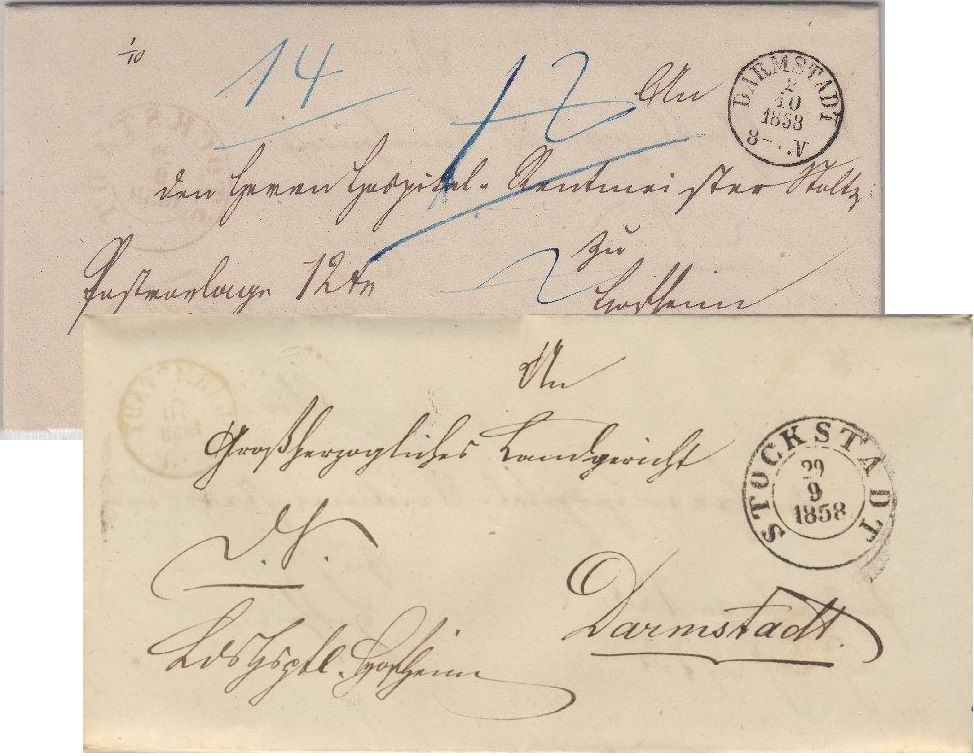 1/10
14
12
An
DARMSTADT
2
10
1858
8-..V
den Herrn Hospital-Rentmeister Stoltz
zu
Postvorlage 12 kr
2
Hofheim
An
Großherzogliches Landgericht
STOCKSTADT
29
9
1858
d. H.
Darmstadt
LdsHsptl. Hofheim